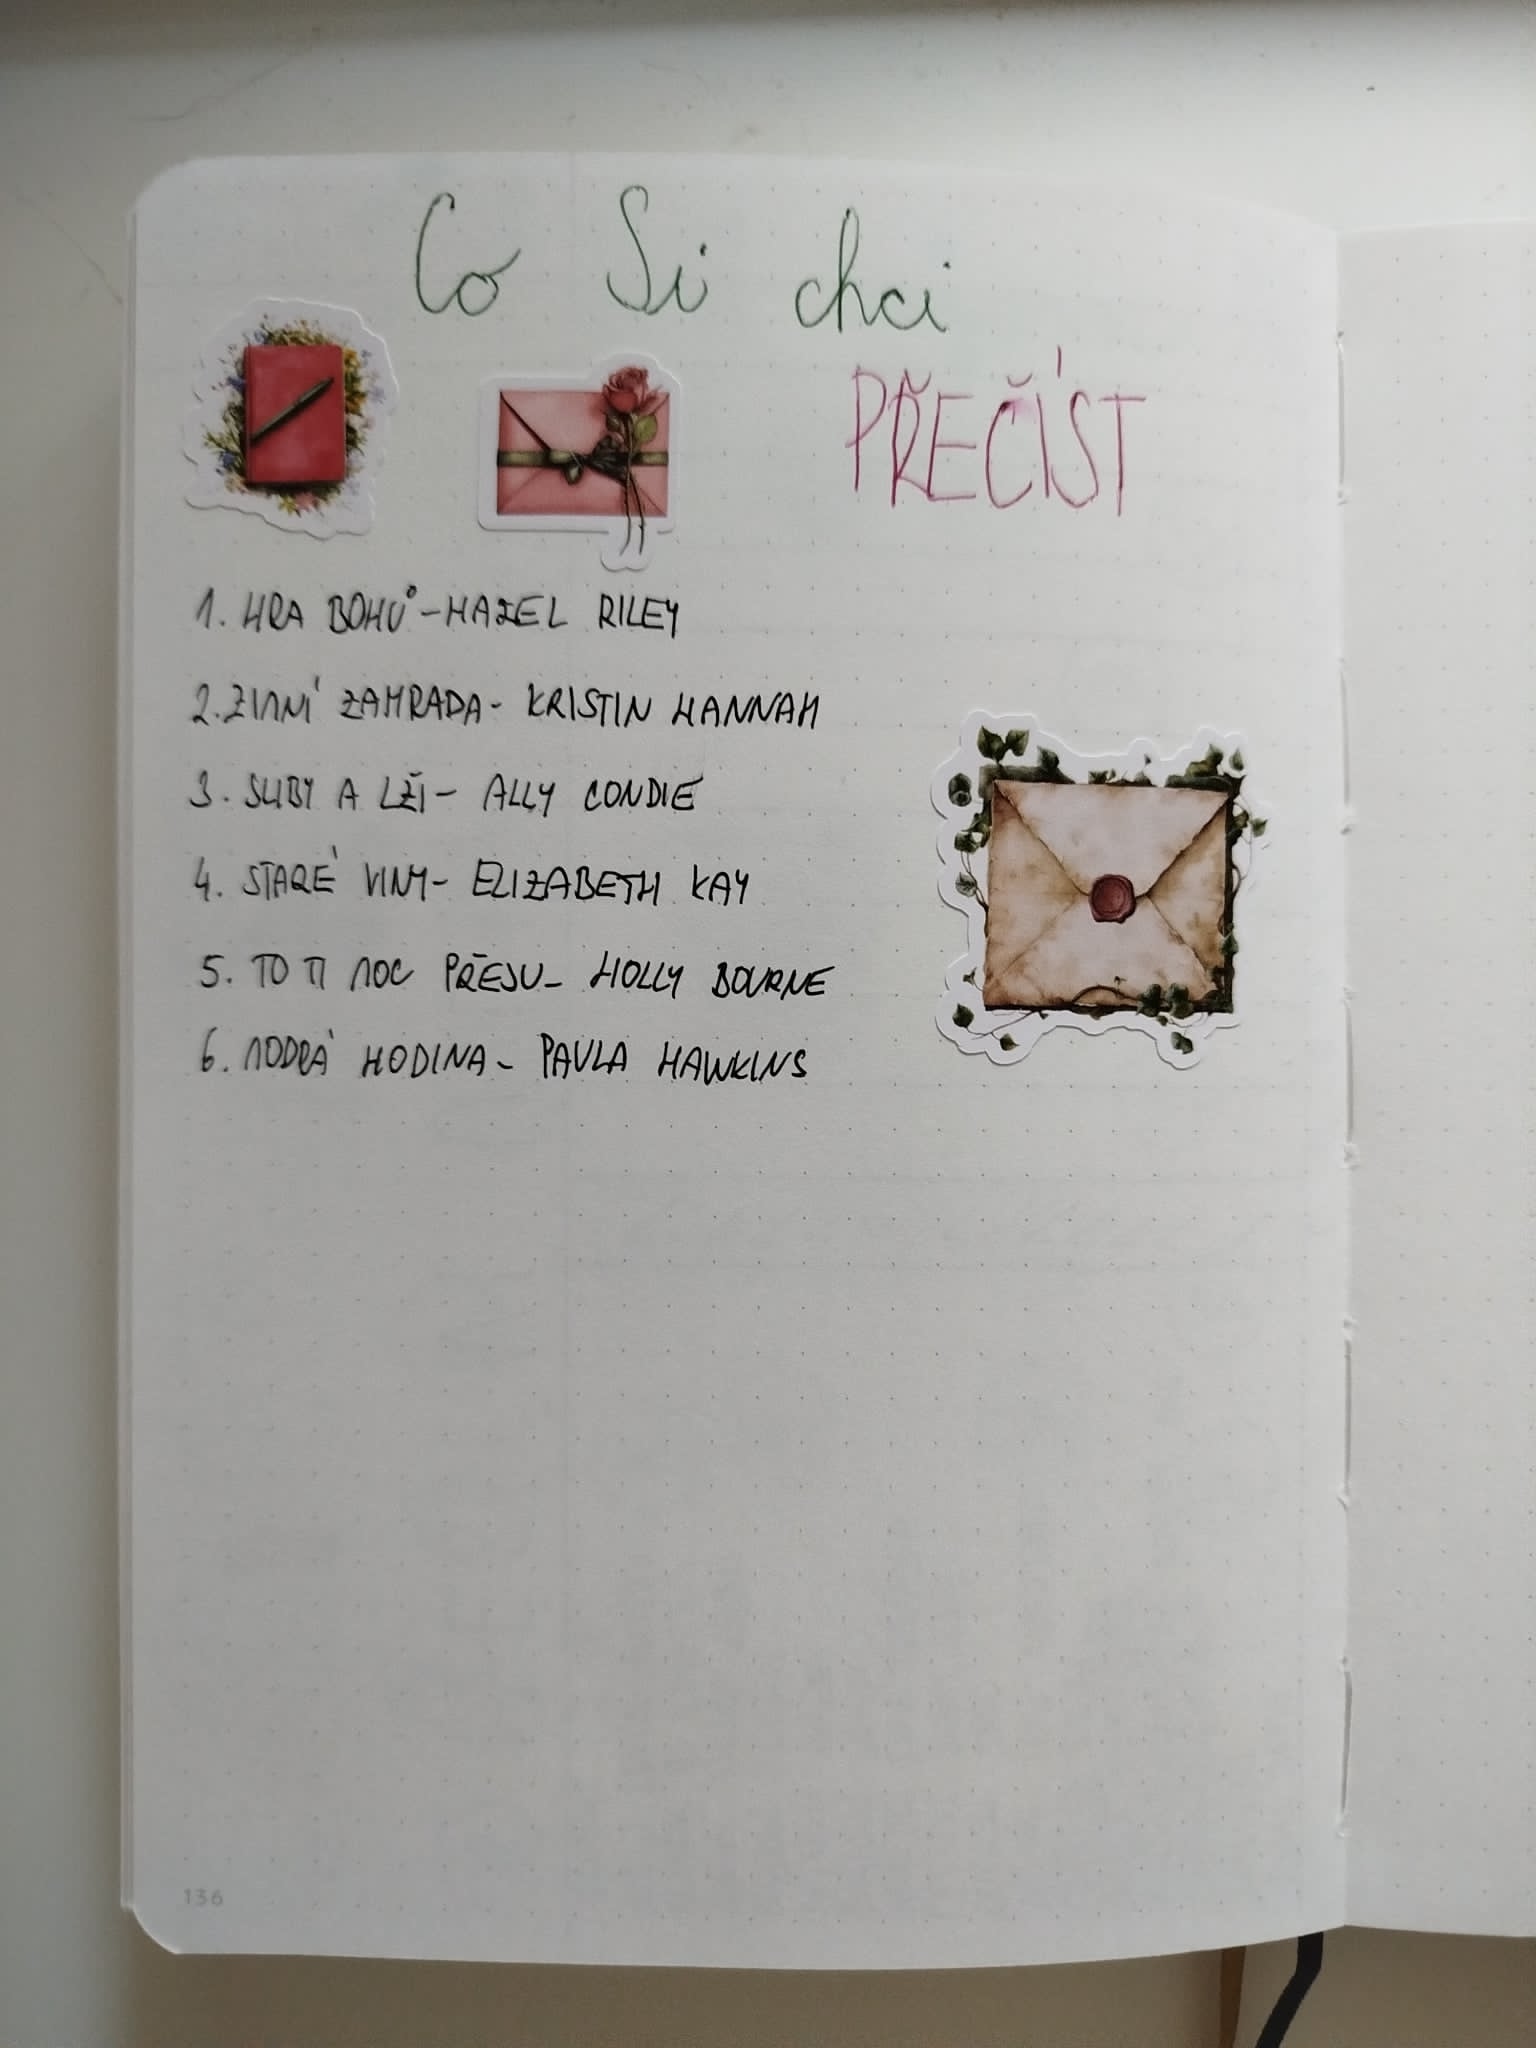 Co Si chci
PŘEČÍST
1. HRA BOHŮ - HAZEL RILEY
2. ZIMNÍ ZAHRADA - KRISTIN HANNAH
3. SLIBY A LŽI - ALLY CONDIE
4. STARÉ VINY - ELIZABETH KAY
5. TO TI MOC PŘEJU - HOLLY BOURNE
6. MODRÁ HODINA - PAULA HAWKINS
136